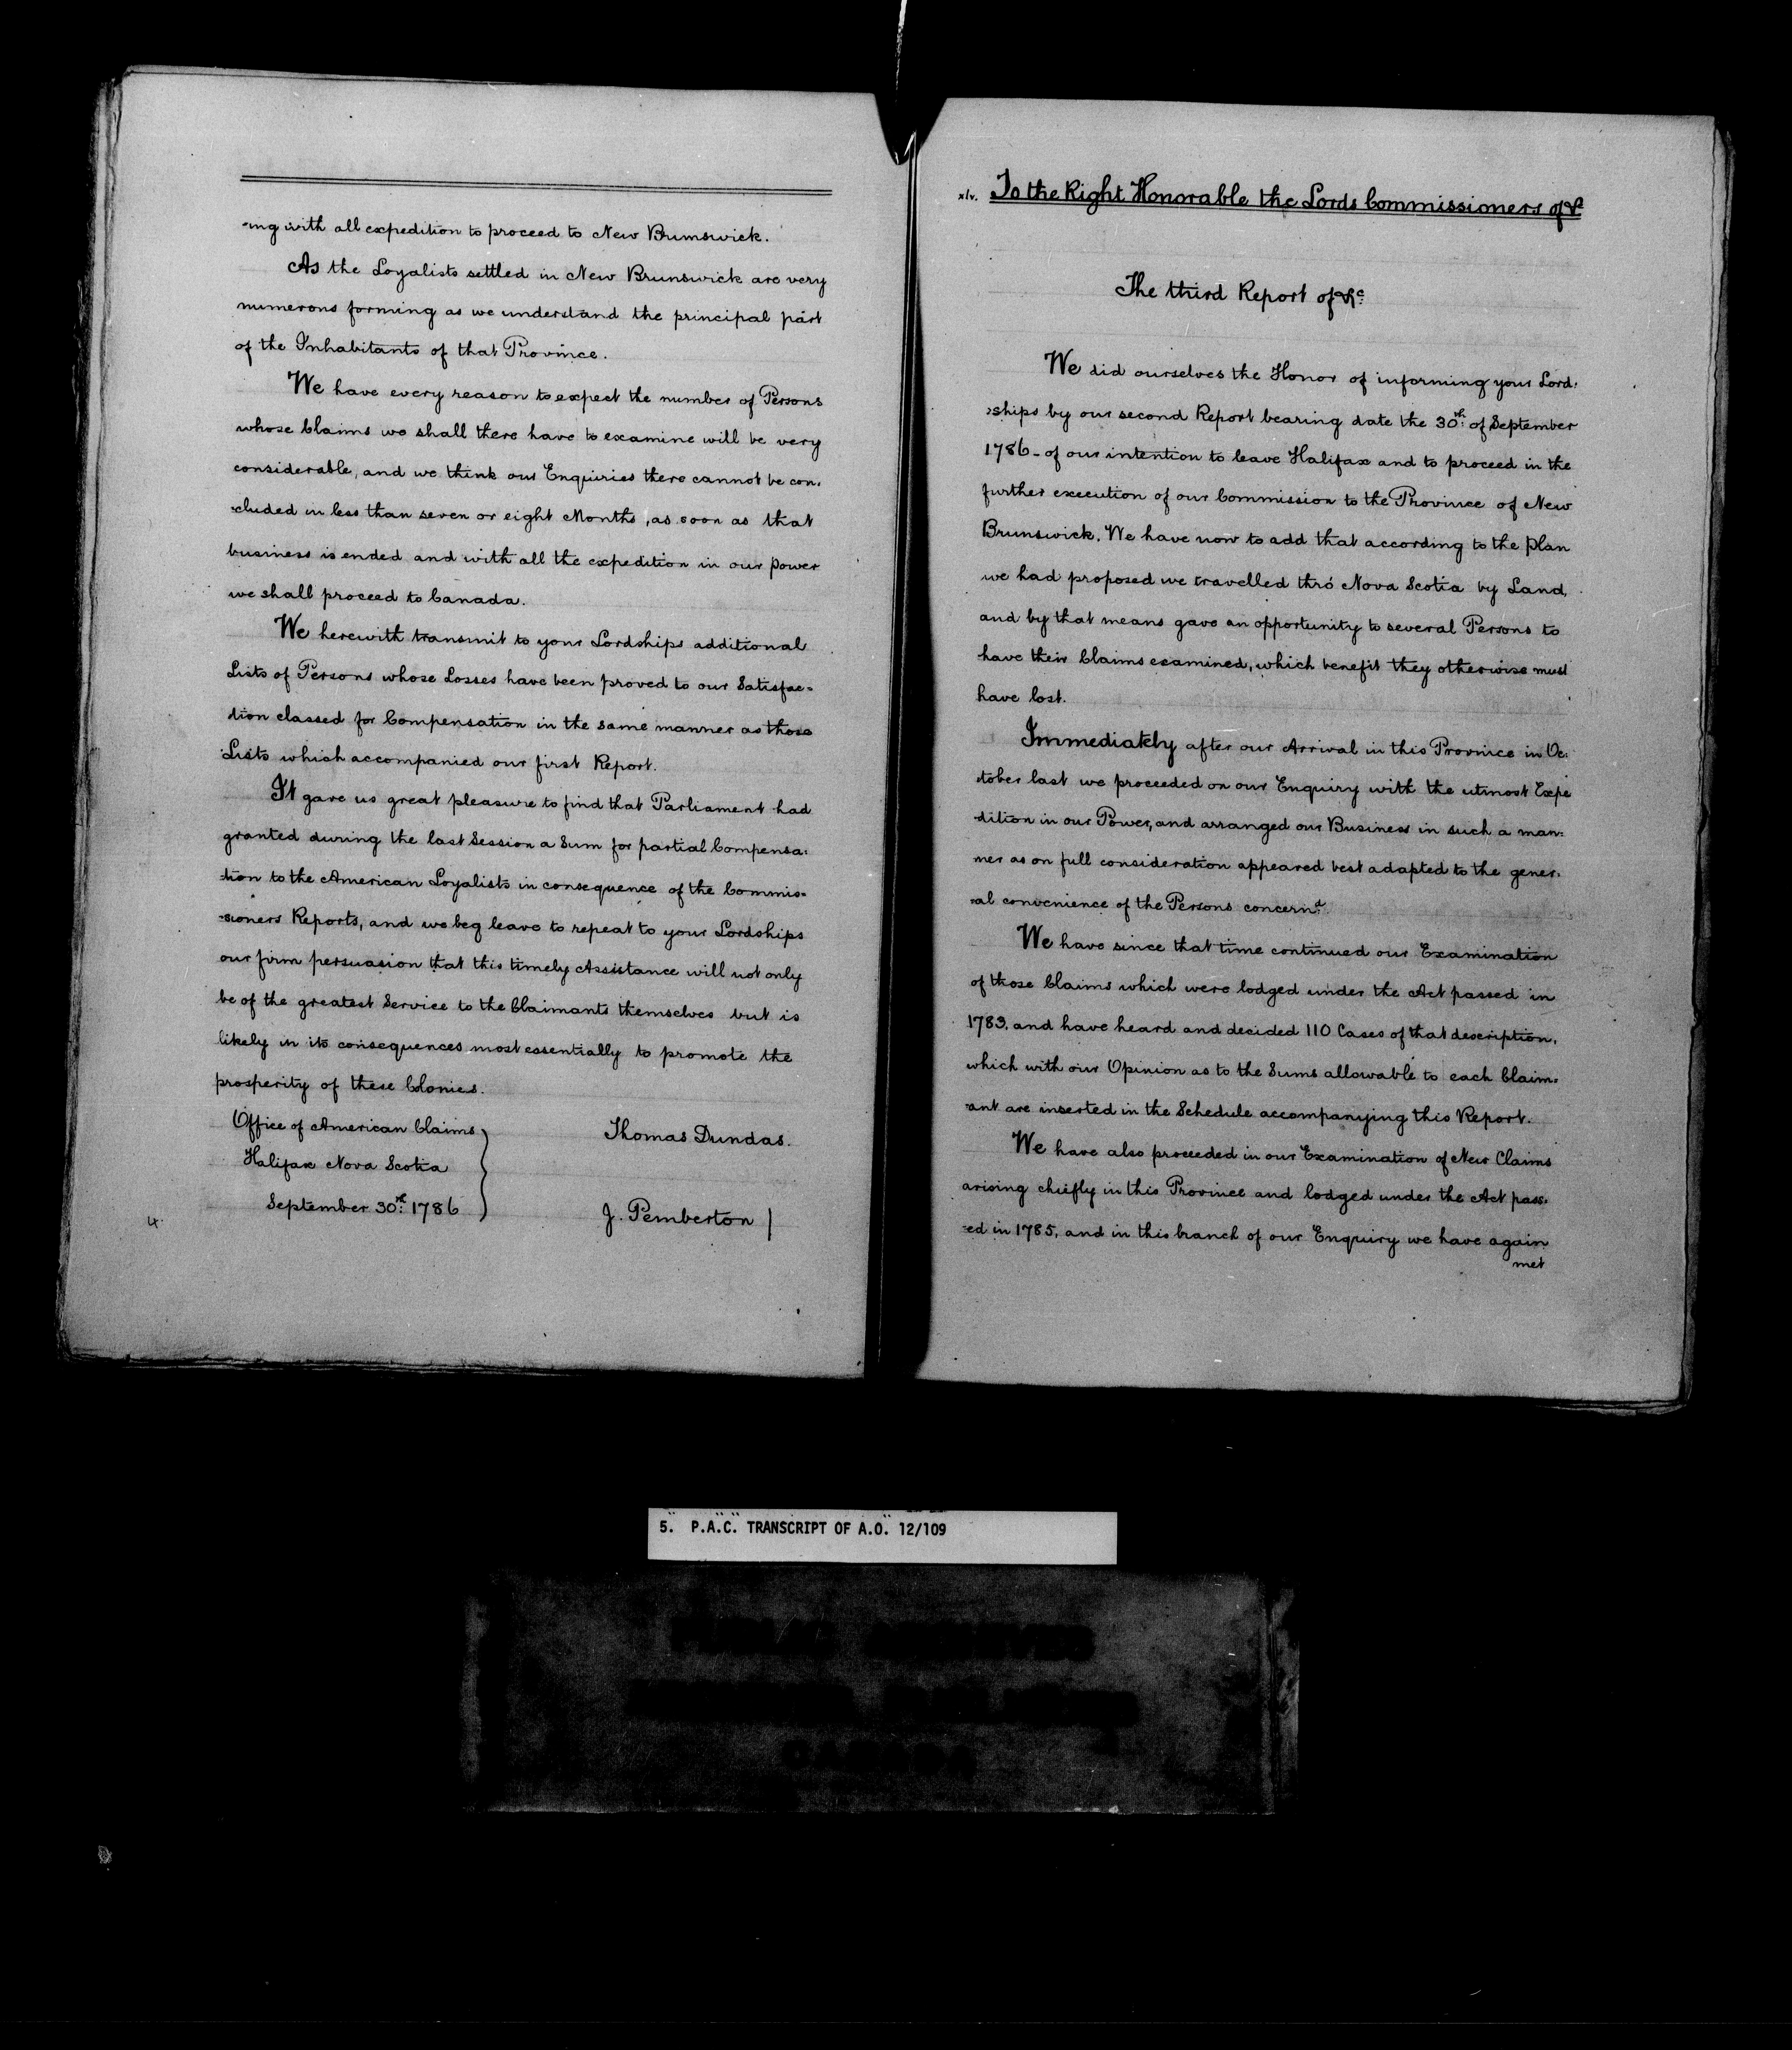 -ing with all expedition to proceed to New Brunswick.
As the Loyalists settled in New Brunswick are very
numerous forming as we understand the principal part
of the Inhabitants of that Province.
We have every reason to expect the number of Persons
whose Claims we shall there have to examine will be very
considerable, and we think our Enquiries there cannot be con-
-cluded in less than seven or eight Months, as soon as that
business is ended and with all the expedition in our power
we shall proceed to Canada.
We herewith transmit to your Lordships additional
Lists of Persons whose Losses have been proved to our Satisfac=
tion classed for Compensation in the same manner as those
Lists which accompanied our first Report.
It gave us great pleasure to find that Parliament had
granted during the last Session a Sum for partial Compensa-
-tion to the American Loyalists in consequence of the Commis-
-sioners Reports, and we beg leave to repeat to your Lordships
our firm persuasion that this timely Assistance will not only
be of the greatest Service to the Claimants themselves but is
likely in its consequences most essentially to promote the
prosperity of these Colonies.
Office of American Claims
Halifax Nova Scotia
September 30th 1786
Thomas Dundas.
J. Pemberton
4.
xlv. To the Right Honorable the Lords Commissioners of &c
The third Report of &c
We did ourselves the Honor of informing your Lord-
-ships by our second Report bearing date the 30th of September
1786 - of our intention to leave Halifax and to proceed in the
further execution of our Commission to the Province of New
Brunswick. We have now to add that according to the plan
we had proposed we travelled thro' Nova Scotia by Land,
and by that means gave an opportunity to several Persons to
have their Claims examined, which benefit they otherwise must
have lost.
Immediately after our Arrival in this Province in Oc-
-tober last we proceeded on our Enquiry with the utmost Expe
-dition in our Power, and arranged our Business in such a man-
ner as on full consideration appeared best adapted to the gener-
-al convenience of the Persons concernd.
We have since that time continued our Examination
of those Claims which were lodged under the Act passed in
1783, and have heard and decided 110 Cases of that description,
which with our Opinion as to the Sums allowable to each Claim-
-ant are inserted in the Schedule accompanying this Report.
We have also proceeded in our Examination of New Claims
arising chiefly in this Province and lodged under the Act pass-
-ed in 1785, and in this branch of our Enquiry we have again
met
5. P.A.C. TRANSCRIPT OF A.O. 12/109